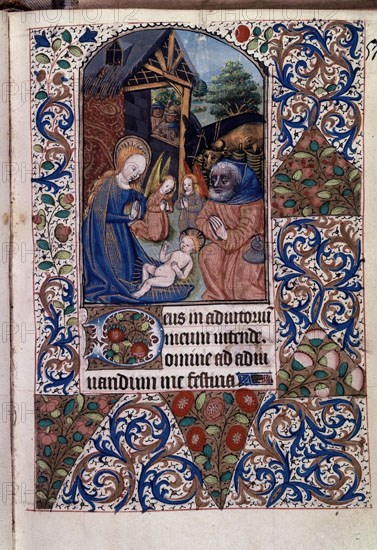 Deus in adiutoriū
meum intend
omine ad adiu
uandum me festina